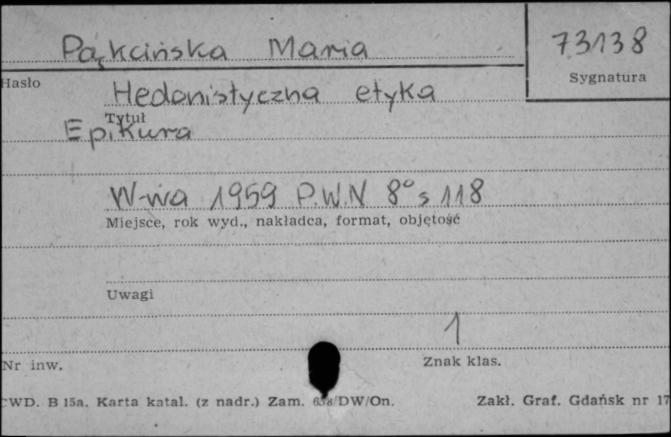 Pąkcińska Maria
73138
Hasło
Sygnatura
Hedonistyczna etyka
Tytuł
Epikura
W-wa 1959 P.W.N 8° s 118
Miejsce, rok wyd., nakładca, format, objętość
Uwagi
1
Nr inw.
Znak klas.
CWD. B 15a. Karta katal. (z nadr.) Zam. /DW/On.
Zakł. Graf. Gdańsk nr 17